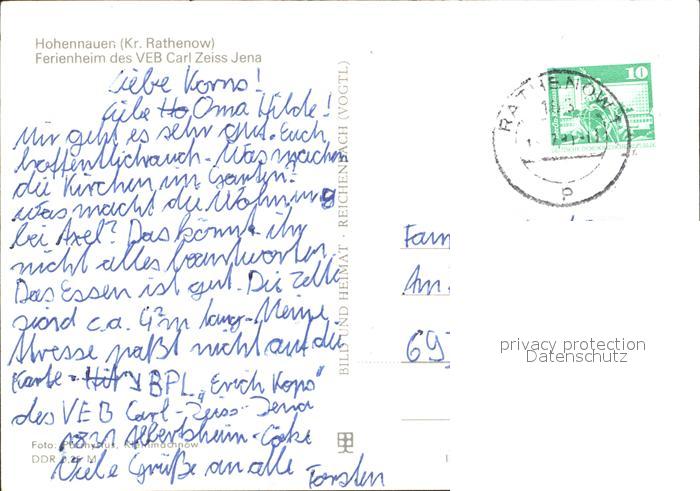 Hohennauen (Kr. Rathenow)
Ferienheim des VEB Carl Zeiss Jena
Liebe Korns!
Liebe Ho Oma Hilde!
Mir geht es sehr gut. Euch
hoffentlich auch. Was machen
die Kirchen im Garten?
Was macht die Wohnung
bei Axel? Das könnt ihr
nicht alles beantworten.
Das Essen ist gut. Die Zelte
sind c.a. 4²m lang. Meine
Adresse paßt nicht auf die
Karte. BPL „Erich
des VEB Carl-Zeiss-Jena
Viele Grüße an alle Torsten
Foto:
DDR 0,25 M
BILD UND HEIMAT · REICHENBACH (VOGTL)
RATHENOW 1
10
Fam
Am
69
privacy protection
Datenschutz